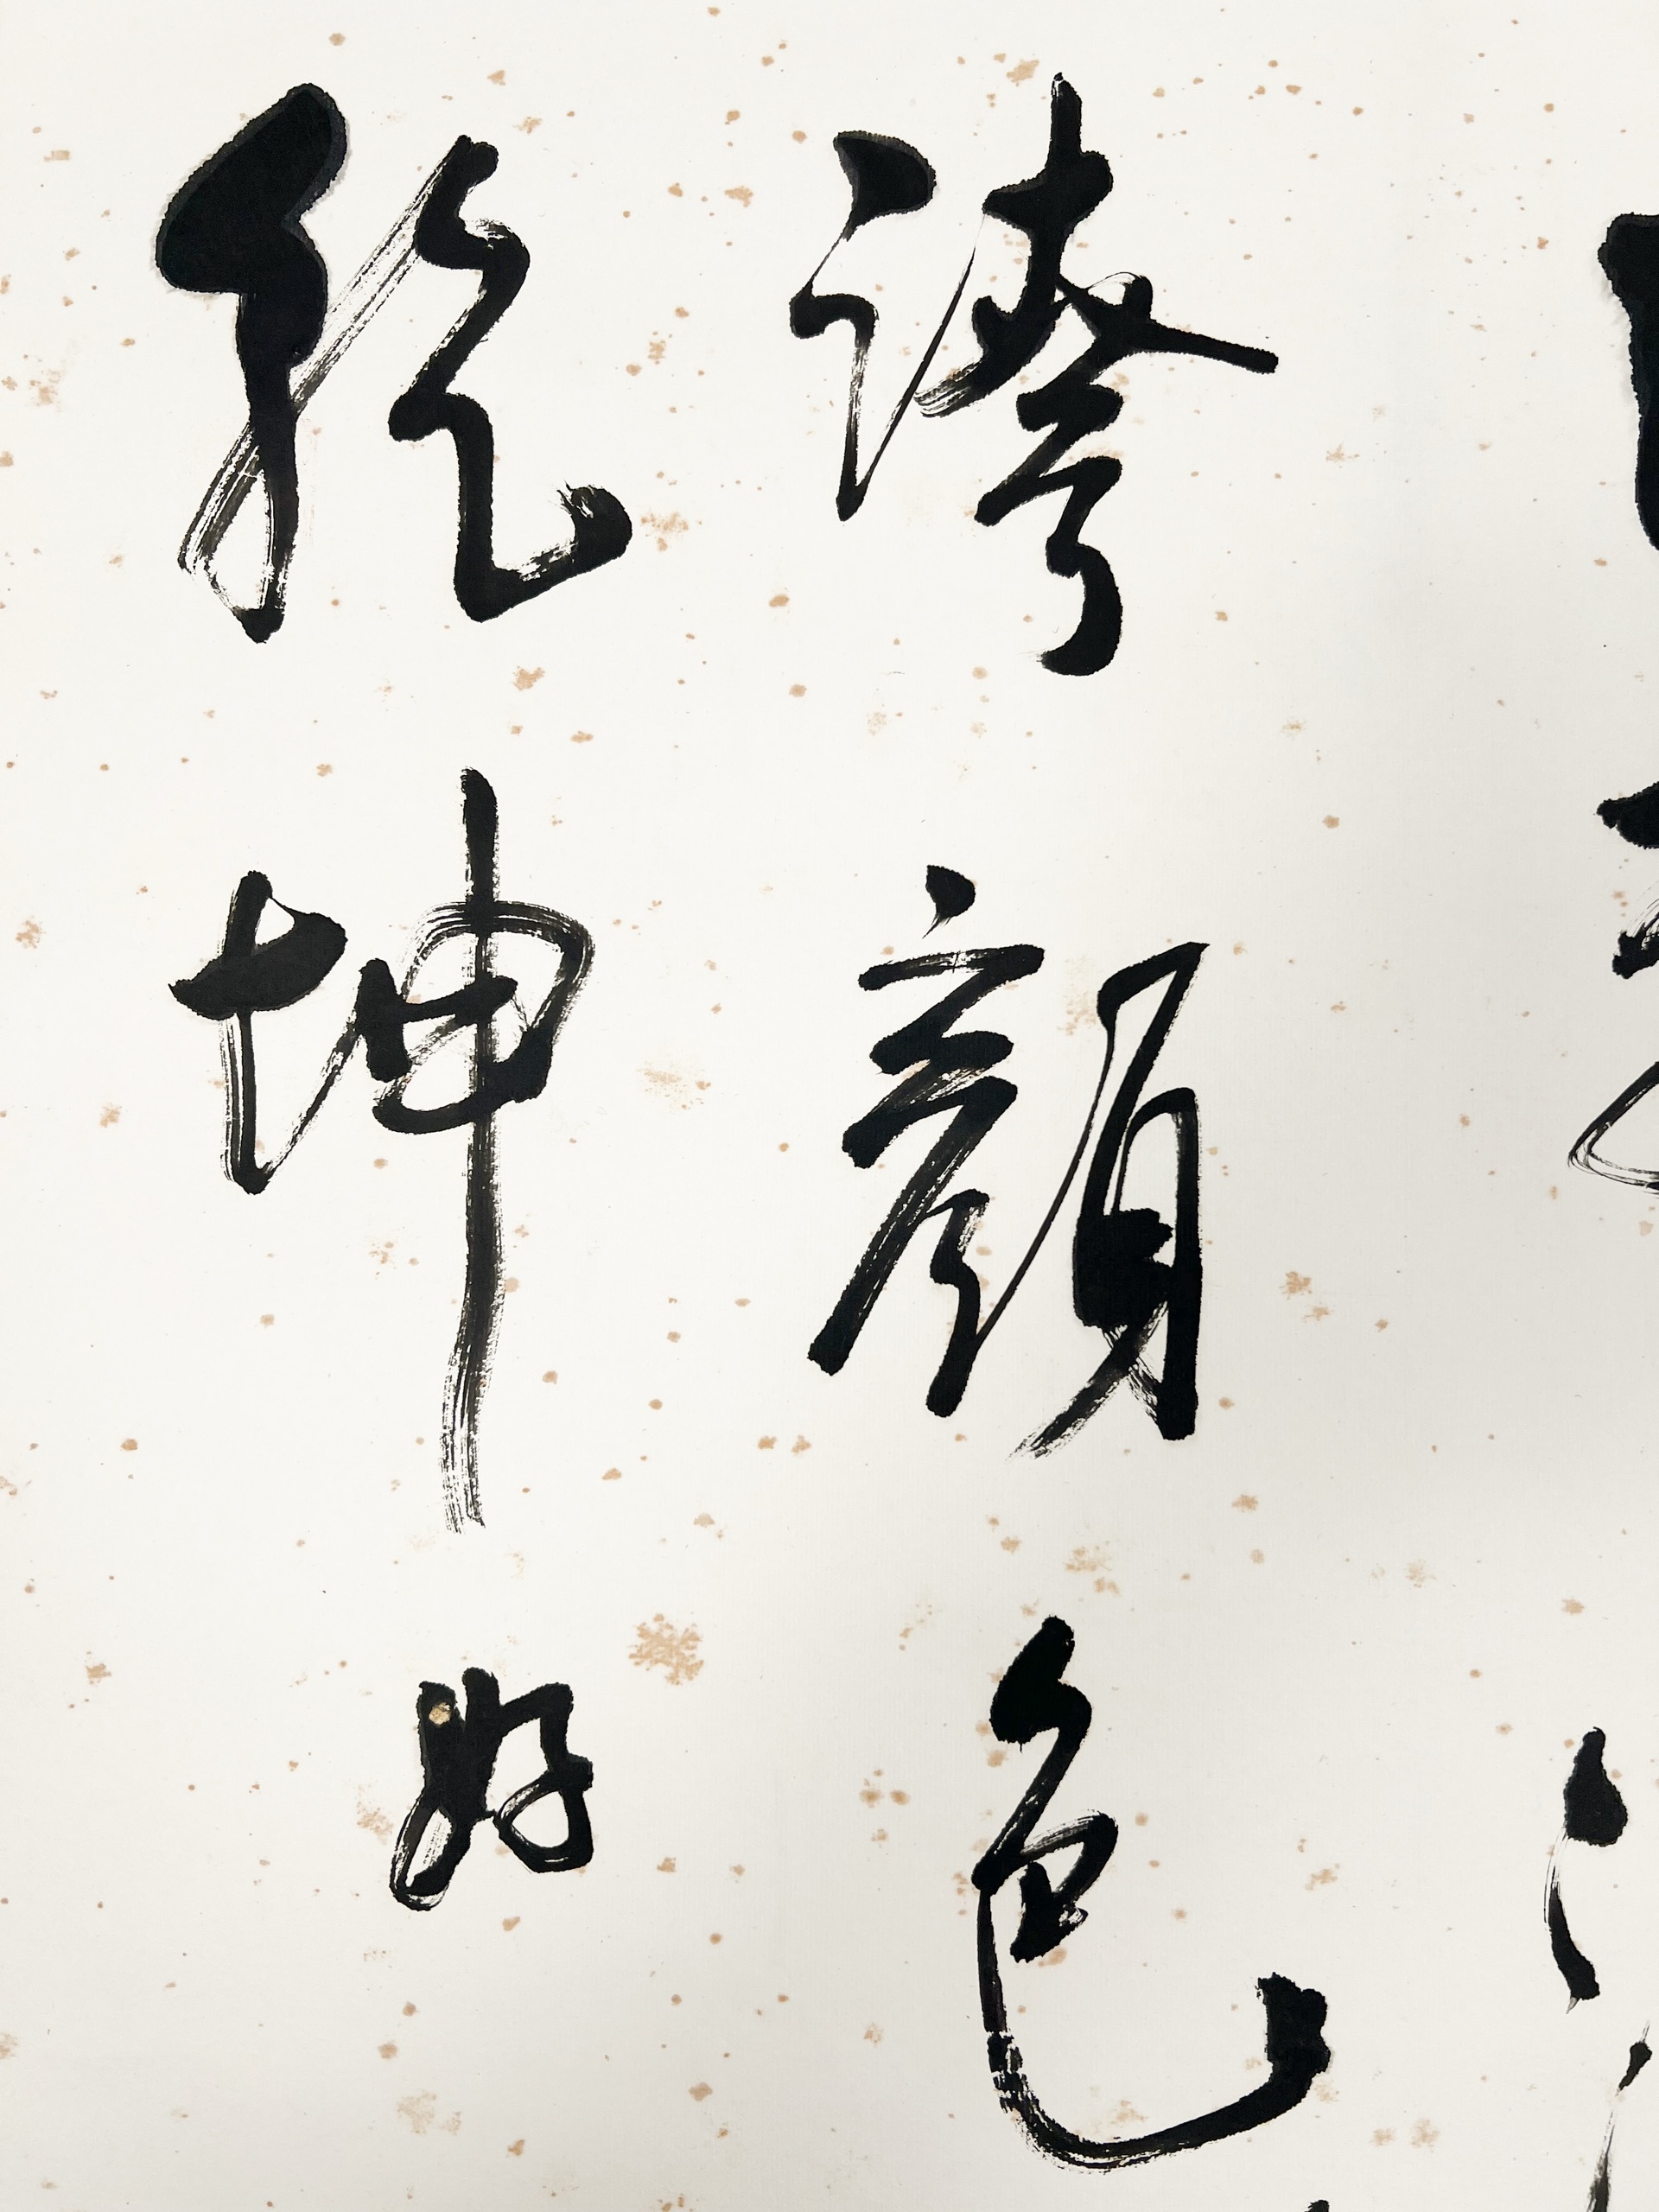 誇顏色
乾坤 好